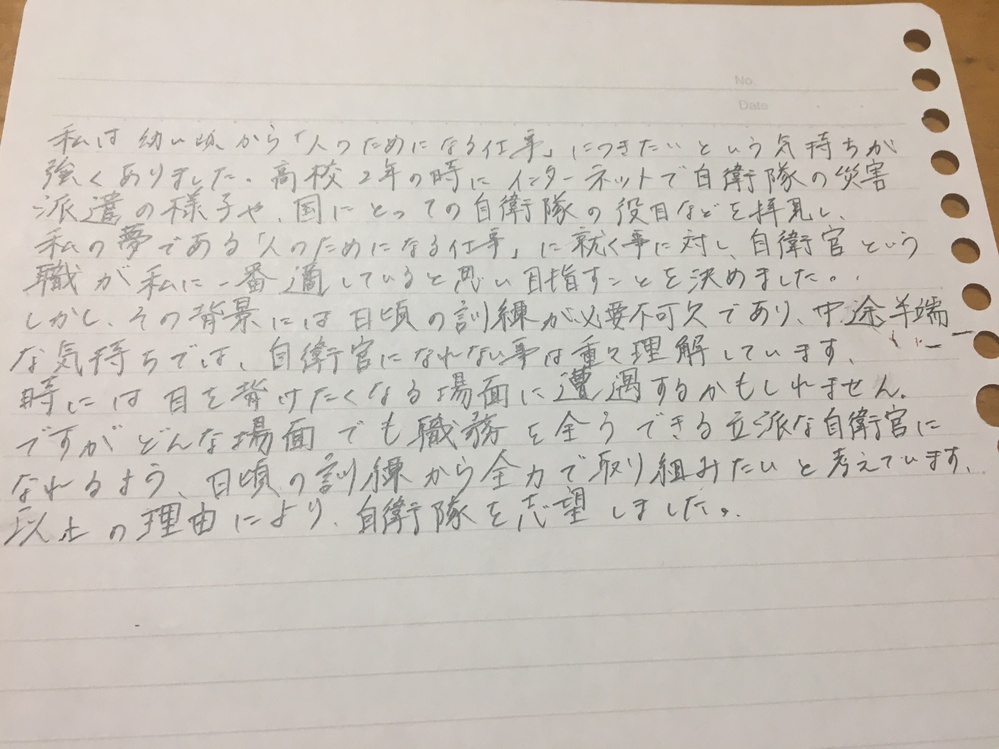 No.
Date
私は幼い頃から「人のためになる仕事」につきたいという気持ちが
強くありました。高校2年の時にインターネットで自衛隊の災害
派遣の様子や、国にとっての自衛隊の役目などを拝見し、
私の夢である「人のためになる仕事」に就く事に対し、自衛官という
職が私に一番適していると思い目指すことを決めました。
しかし、その背景には日頃の訓練が必要不可欠であり、中途半端
な気持ちでは、自衛官になれない事は重々理解しています。
時には目を背けたくなる場面に遭遇するかもしれません。
ですがどんな場面でも職務を全うできる立派な自衛官に
なれるよう、日頃の訓練から全力で取り組みたいと考えています。
以上の理由により、自衛隊を志望しました。